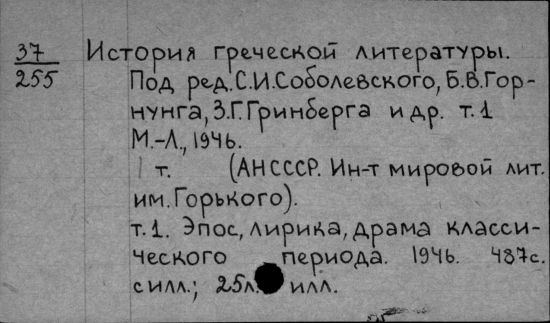 37 История греческой литературы.
255 Под ред. С.И.Соболевского, Б.В.Гор-
нунга, З.Г.Гринберга и др. т.1
М.-Л., 1946.
1 т. (АНСССР. Ин-т мировой лит.
им. Горького).
т.1. Эпос, лирика, драма класси-
ческого периода. 1946. 487с.
с илл.; 25л. илл.